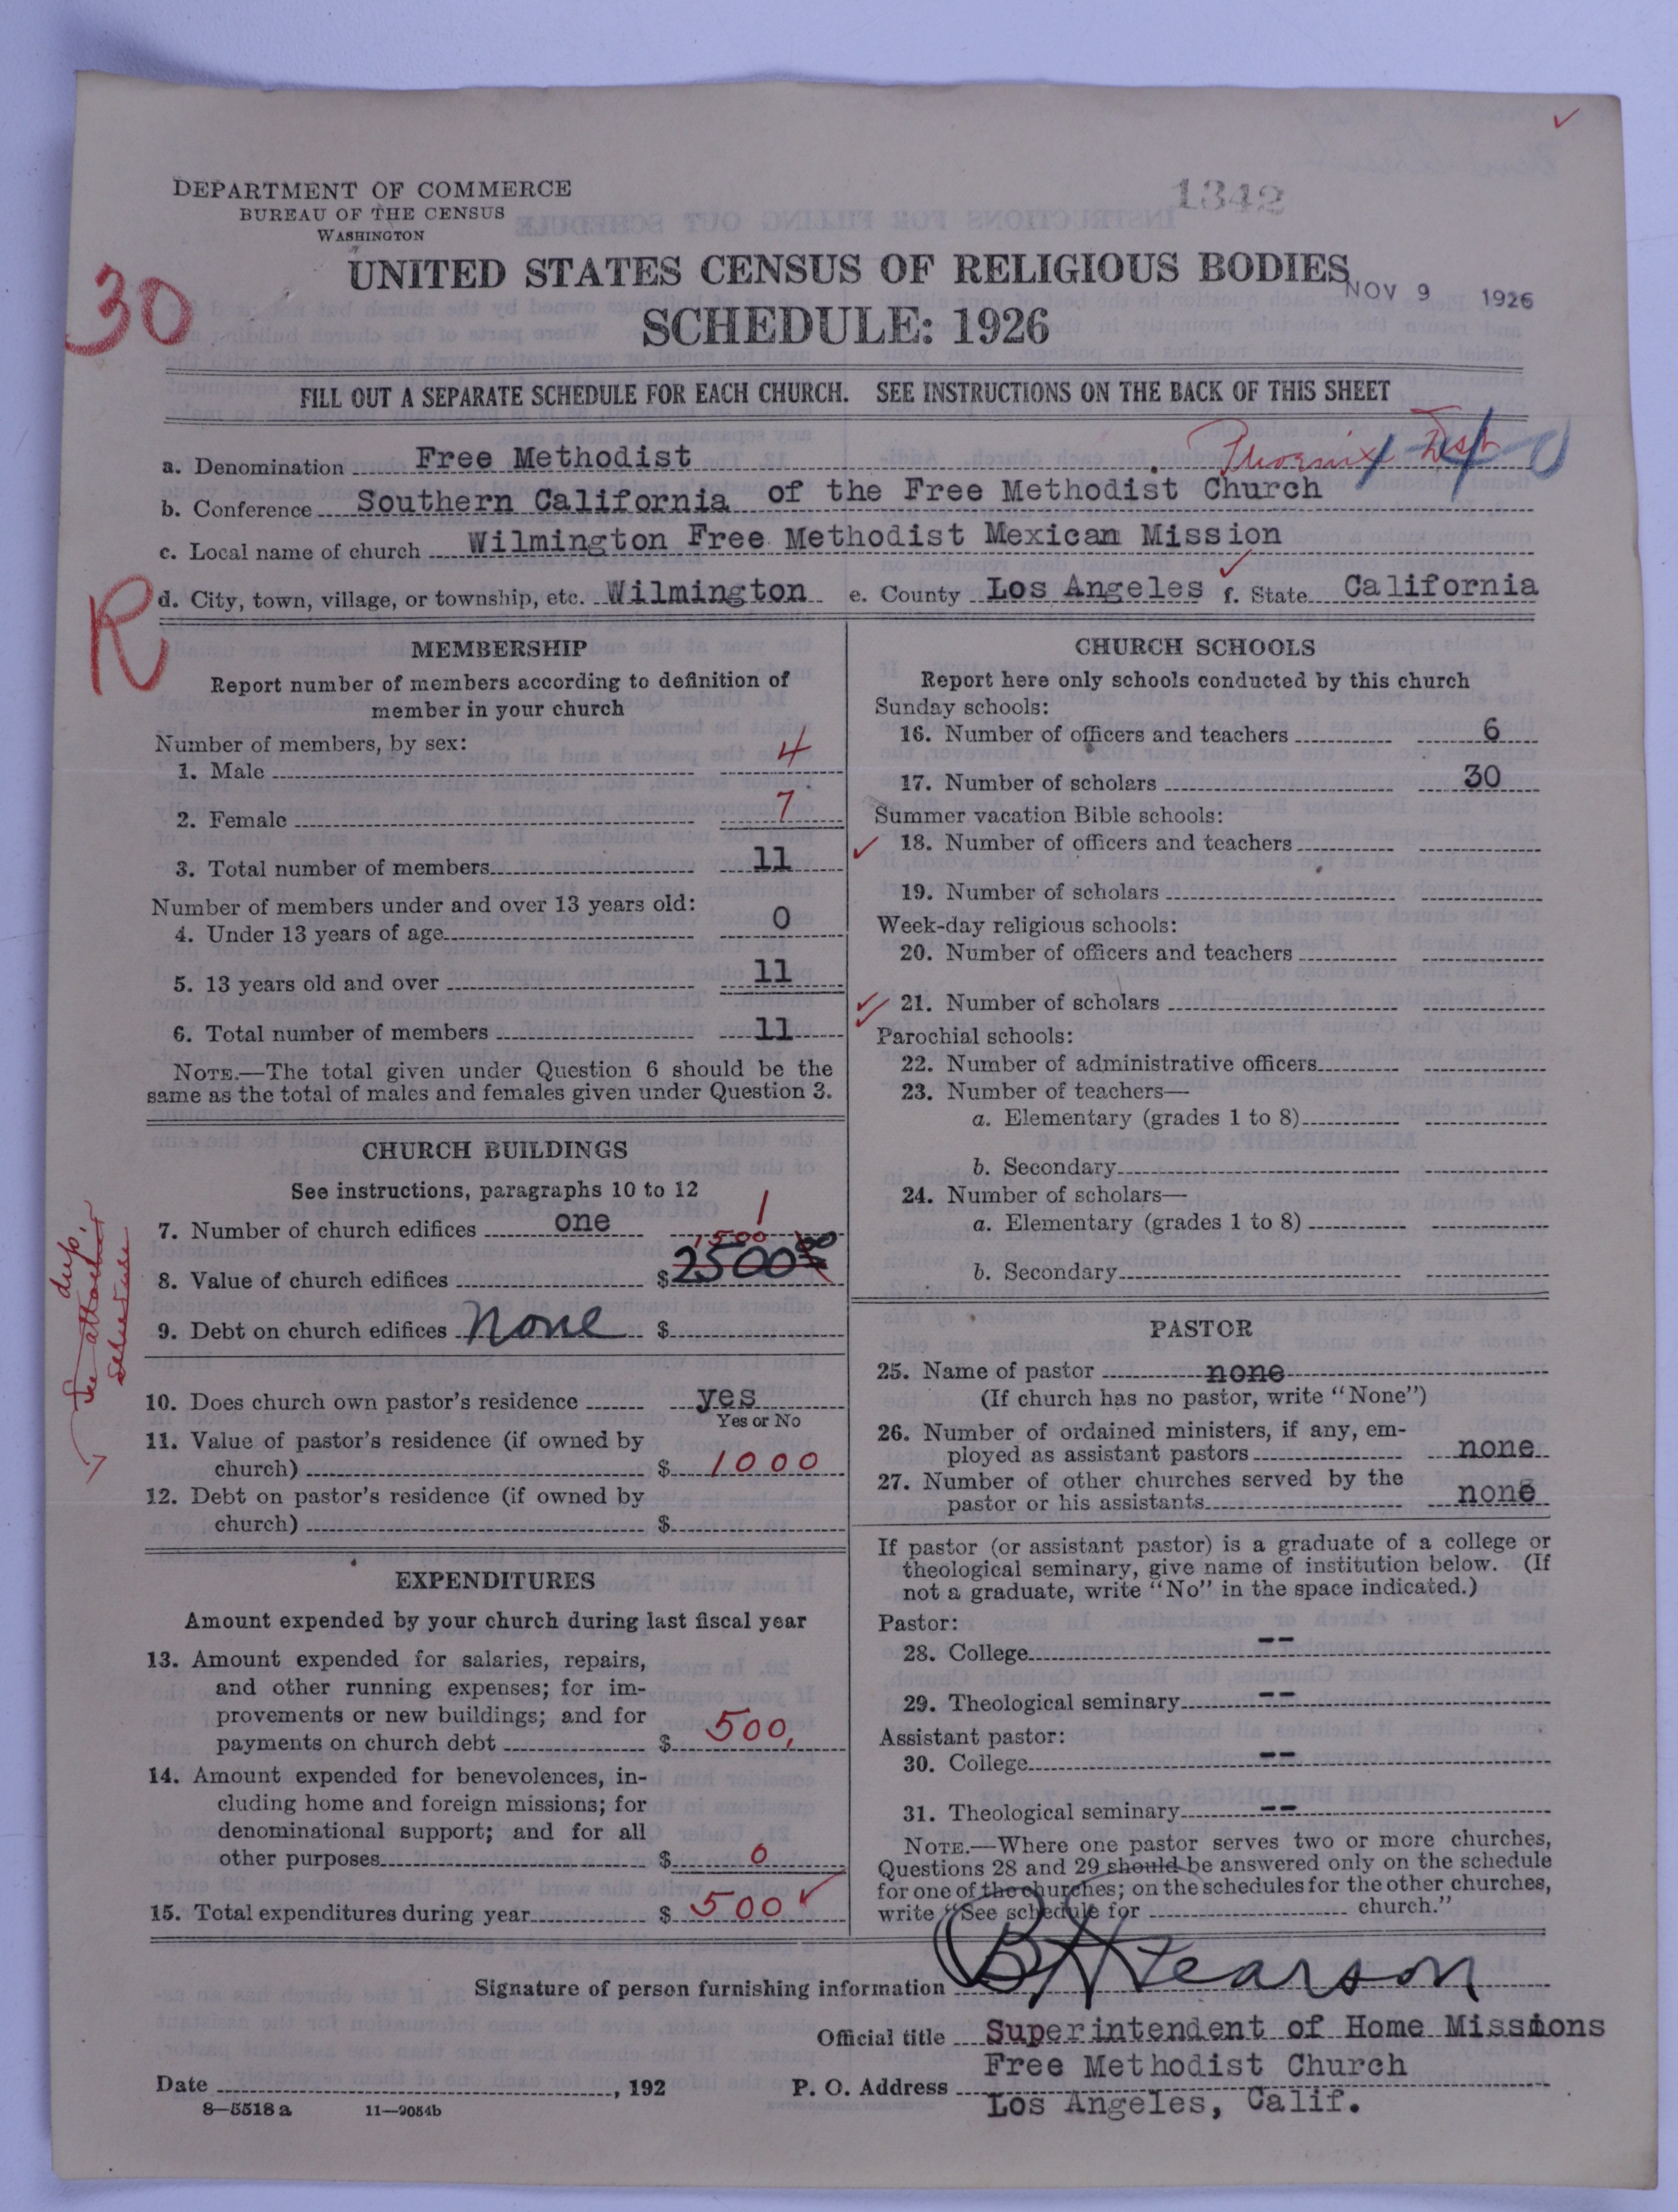 DEPARTMENT OF COMMERCE
BUREAU OF THE CENSUS
WASHINGTON
1342
UNITED STATES CENSUS OF RELIGIOUS BODIES
NOV 9 1926
30
SCHEDULE: 1926
FILL OUT A SEPARATE SCHEDULE FOR EACH CHURCH. SEE INSTRUCTIONS ON THE BACK OF THIS SHEET
Phoenix Dist
a. Denomination Free Methodist
b. Conference Southern California of the Free Methodist Church
c. Local name of church Wilmington Free Methodist Mexican Mission
d. City, town, village, or township, etc. Wilmington e. County Los Angeles f. State California
R
MEMBERSHIP
Report number of members according to definition of
member in your church
Number of members, by sex:
1. Male 4
2. Female 7
3. Total number of members 11
Number of members under and over 13 years old:
4. Under 13 years of age 0
5. 13 years old and over 11
6. Total number of members 11
NOTE.—The total given under Question 6 should be the
same as the total of males and females given under Question 3.
CHURCH BUILDINGS
See instructions, paragraphs 10 to 12
7. Number of church edifices one 1
1500
8. Value of church edifices $ 2500 00
9. Debt on church edifices None $
See attached dup. schedule
10. Does church own pastor's residence yes
Yes or No
11. Value of pastor's residence (if owned by
church) $ 1000
12. Debt on pastor's residence (if owned by
church) $
EXPENDITURES
Amount expended by your church during last fiscal year
13. Amount expended for salaries, repairs,
and other running expenses; for im-
provements or new buildings; and for
payments on church debt $ 500,
14. Amount expended for benevolences, in-
cluding home and foreign missions; for
denominational support; and for all
other purposes $ 0
15. Total expenditures during year $ 500
CHURCH SCHOOLS
Report here only schools conducted by this church
Sunday schools:
16. Number of officers and teachers 6
17. Number of scholars 30
Summer vacation Bible schools:
18. Number of officers and teachers
19. Number of scholars
Week-day religious schools:
20. Number of officers and teachers
21. Number of scholars
Parochial schools:
22. Number of administrative officers
23. Number of teachers—
a. Elementary (grades 1 to 8)
b. Secondary
24. Number of scholars—
a. Elementary (grades 1 to 8)
b. Secondary
PASTOR
25. Name of pastor none
(If church has no pastor, write "None")
26. Number of ordained ministers, if any, em-
ployed as assistant pastors none
27. Number of other churches served by the
pastor or his assistants none
If pastor (or assistant pastor) is a graduate of a college or
theological seminary, give name of institution below. (If
not a graduate, write "No" in the space indicated.)
Pastor:
28. College --
29. Theological seminary --
Assistant pastor:
30. College --
31. Theological seminary --
NOTE.—Where one pastor serves two or more churches,
Questions 28 and 29 should be answered only on the schedule
for one of the churches; on the schedules for the other churches,
write "See schedule for church."
Signature of person furnishing information B H Pearson
Official title Superintendent of Home Missions
Free Methodist Church
Date , 192 P. O. Address Los Angeles, Calif.
8—5518 a 11—9054b